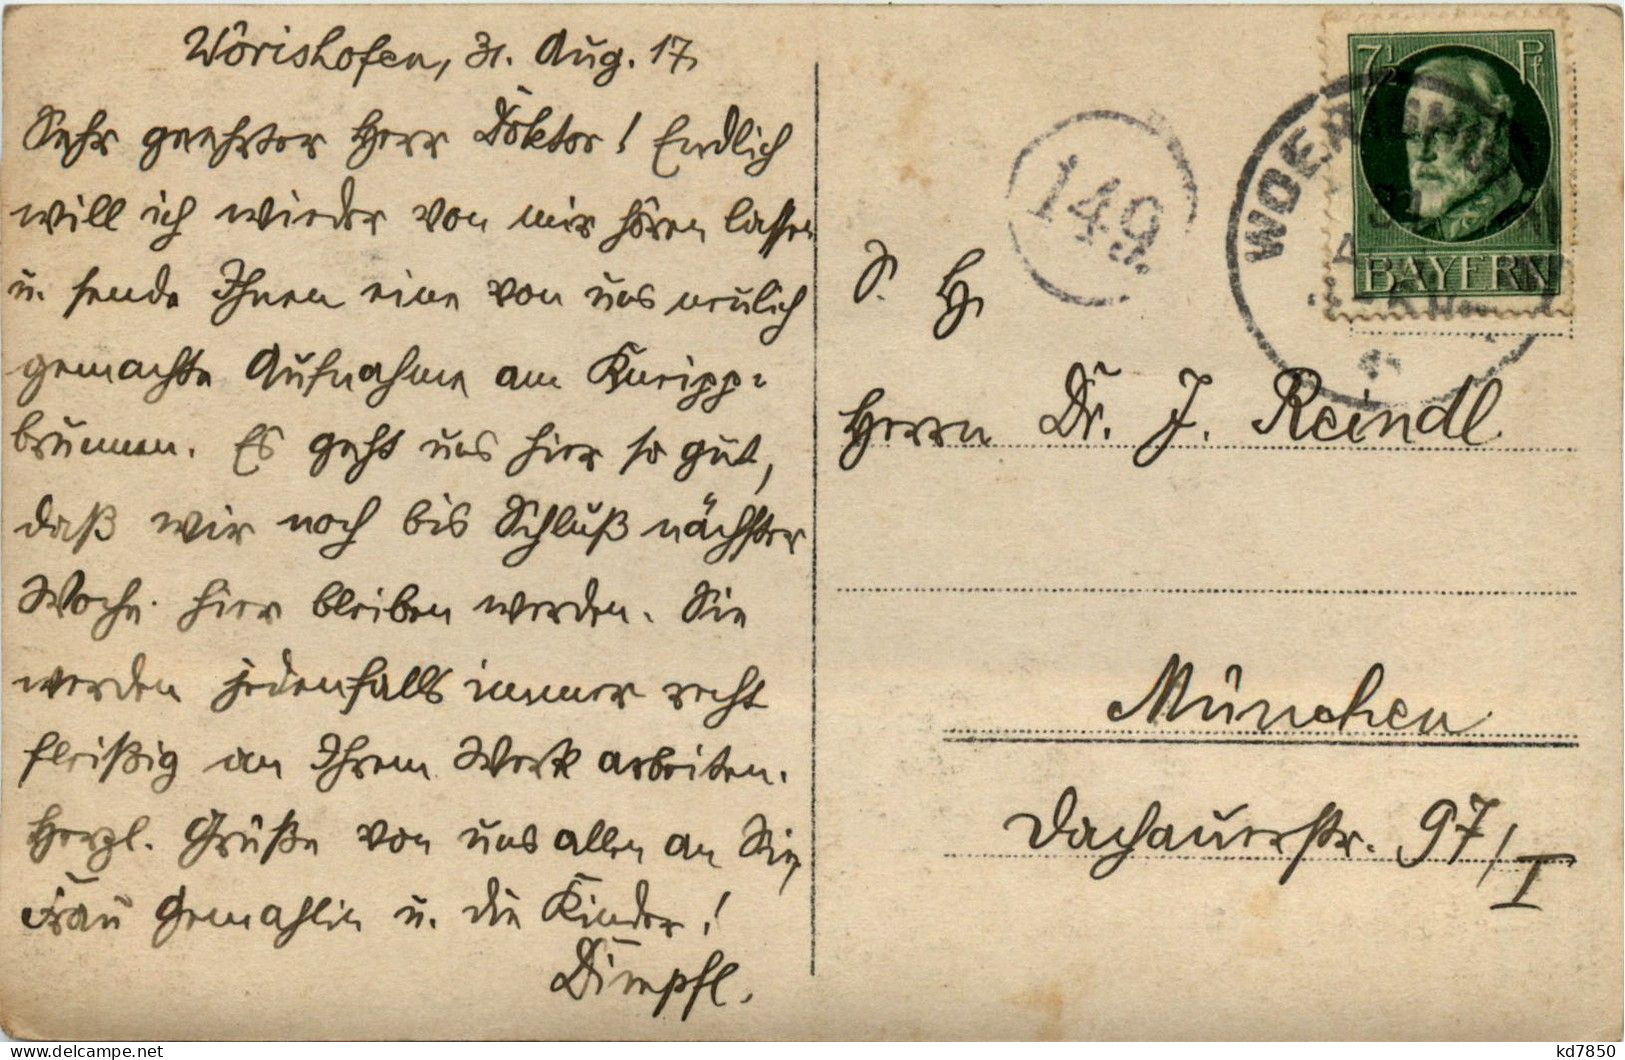 Wörishofen, 31. Aug. 17.
Sehr geehrter Herr Doktor! Endlich
will ich wieder von mir hören lassen
u. sende Ihnen eine von uns neulich
gemachte Aufnahme am Kneipp-
brunnen. Es geht uns hier so gut,
daß wir noch bis Schluß nächster
Woche hier bleiben werden. Sie
werden jedenfalls immer recht
fleißig an Ihrem Werk arbeiten.
Herzl. Grüße von uns allen an Sie,
Frau Gemahlin u. die Kinder!
Dimpfl.
149.
7½ Pf
BAYERN
S. H.
Herrn Dr. J. Reindl
München
Dachauerstr. 97/I
kd7850